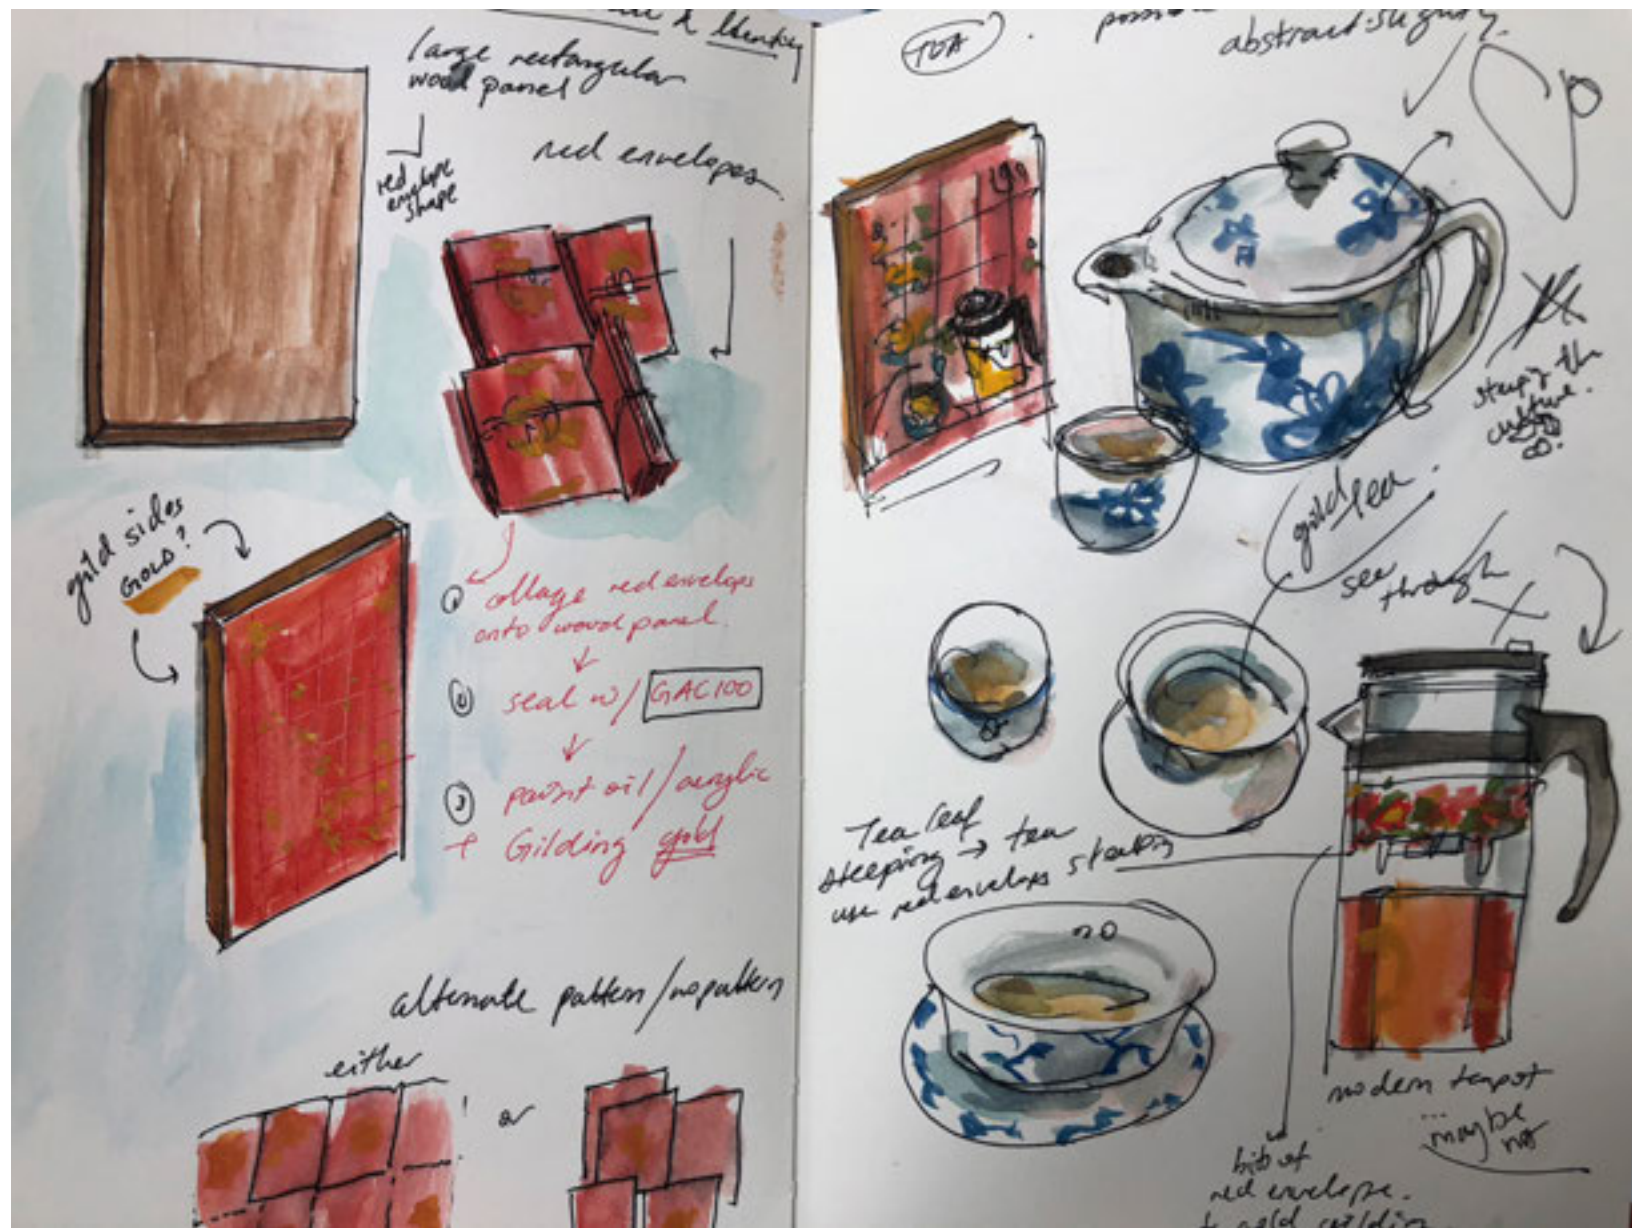 & Identity
large rectangular
wood panel
red
envelope
shape
red envelopes
gild sides
GOLD?
① collage red envelops
onto wood panel.
② seal w/ GAC100
③ paint oil/acrylic
+ Gilding gold
alternate pattern/no pattern
either
or
TEA
abstract
steeping the
culture.
gild tea
see
through
Tea leaf
steeping → tea
use red envelops steeping
modern teapot
...maybe
not
bits of
red envelope.
+ gold gilding